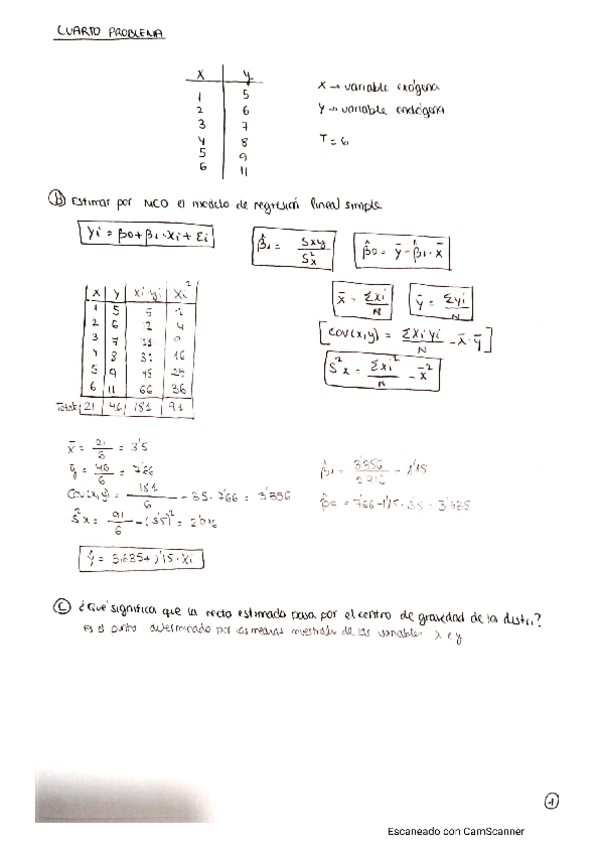 CUARTO PROBLEMA
X Y
1 5
2 6
3 7
4 8
5 9
6 11
X → variable exógena
Y → variable endógena
T = 6
(B) Estimar por MCO el modelo de regresión lineal simple
Yi = β0 + β1 · Xi + Ei
β̂1 = Sxy / S²x
β̂0 = ȳ - β̂1 · x̄
X Y xi·yi Xi²
1 5 5
2 6 4
3 7
4 8 16
5 9 45
6 11 66 36
Total 21 46 181 91
x̄ = Σxi / N
ȳ = Σyi / N
[cov(x,y) = Σxiyi / N - x̄·ȳ]
S²x = Σxi² / N - x̄²
x̄ = 21/6 = 3'5
ȳ = 46/6 = 7'66
Cov(x,y) = 181/6 - 3'5 · 7'66 = 3'356
S²x = 91/6 - (3'5)² = 2'916
β̂1 = 3'356 / 2'916 = 1'15
β̂0 = 7'66 - 1'15 · 3'5 = 3'635
ŷ = 3,635 + 1'15 · Xi
(C) ¿Qué significa que la recta estimada pasa por el centro de gravedad de la distri?
Es el punto determinado por las medias muestrales de las variables x e y
1
Escaneado con CamScanner